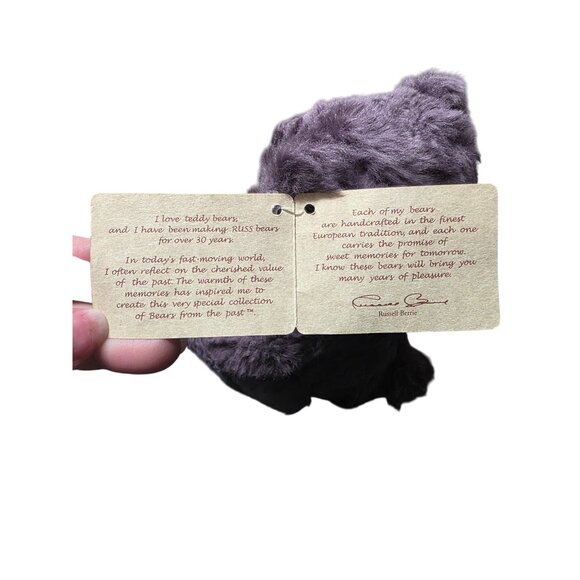 I love teddy bears,
and I have been making RUSS bears
for over 30 years.
In today's fast-moving world,
I often reflect on the cherished value
of the past. The warmth of these
memories has inspired me to
create this very special collection
of Bears from the past™
Each of my bears
are handcrafted in the finest
European tradition, and each one
carries the promise of
sweet memories for tomorrow.
I know these bears will bring you
many years of pleasure.
Russell Berrie
Russell Berrie